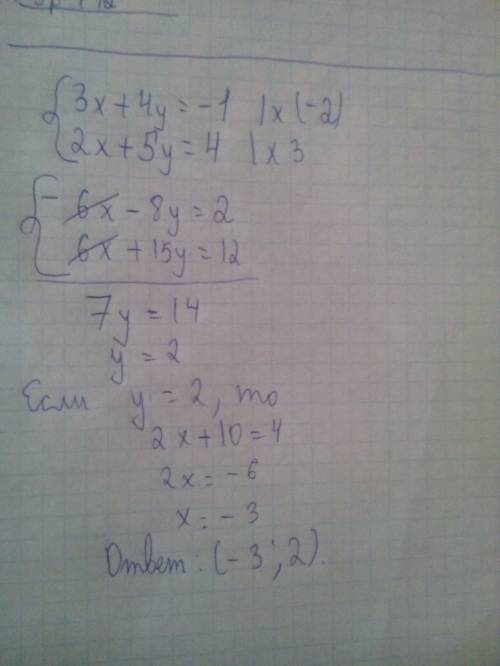 3x+4y=-1 | x (-2)
2x+5y=4 | x 3
- 6x - 8y = 2
6x + 15y = 12
7y = 14
y = 2
Если y = 2, то
2x+10=4
2x = -6
x = -3
Ответ: (-3; 2).